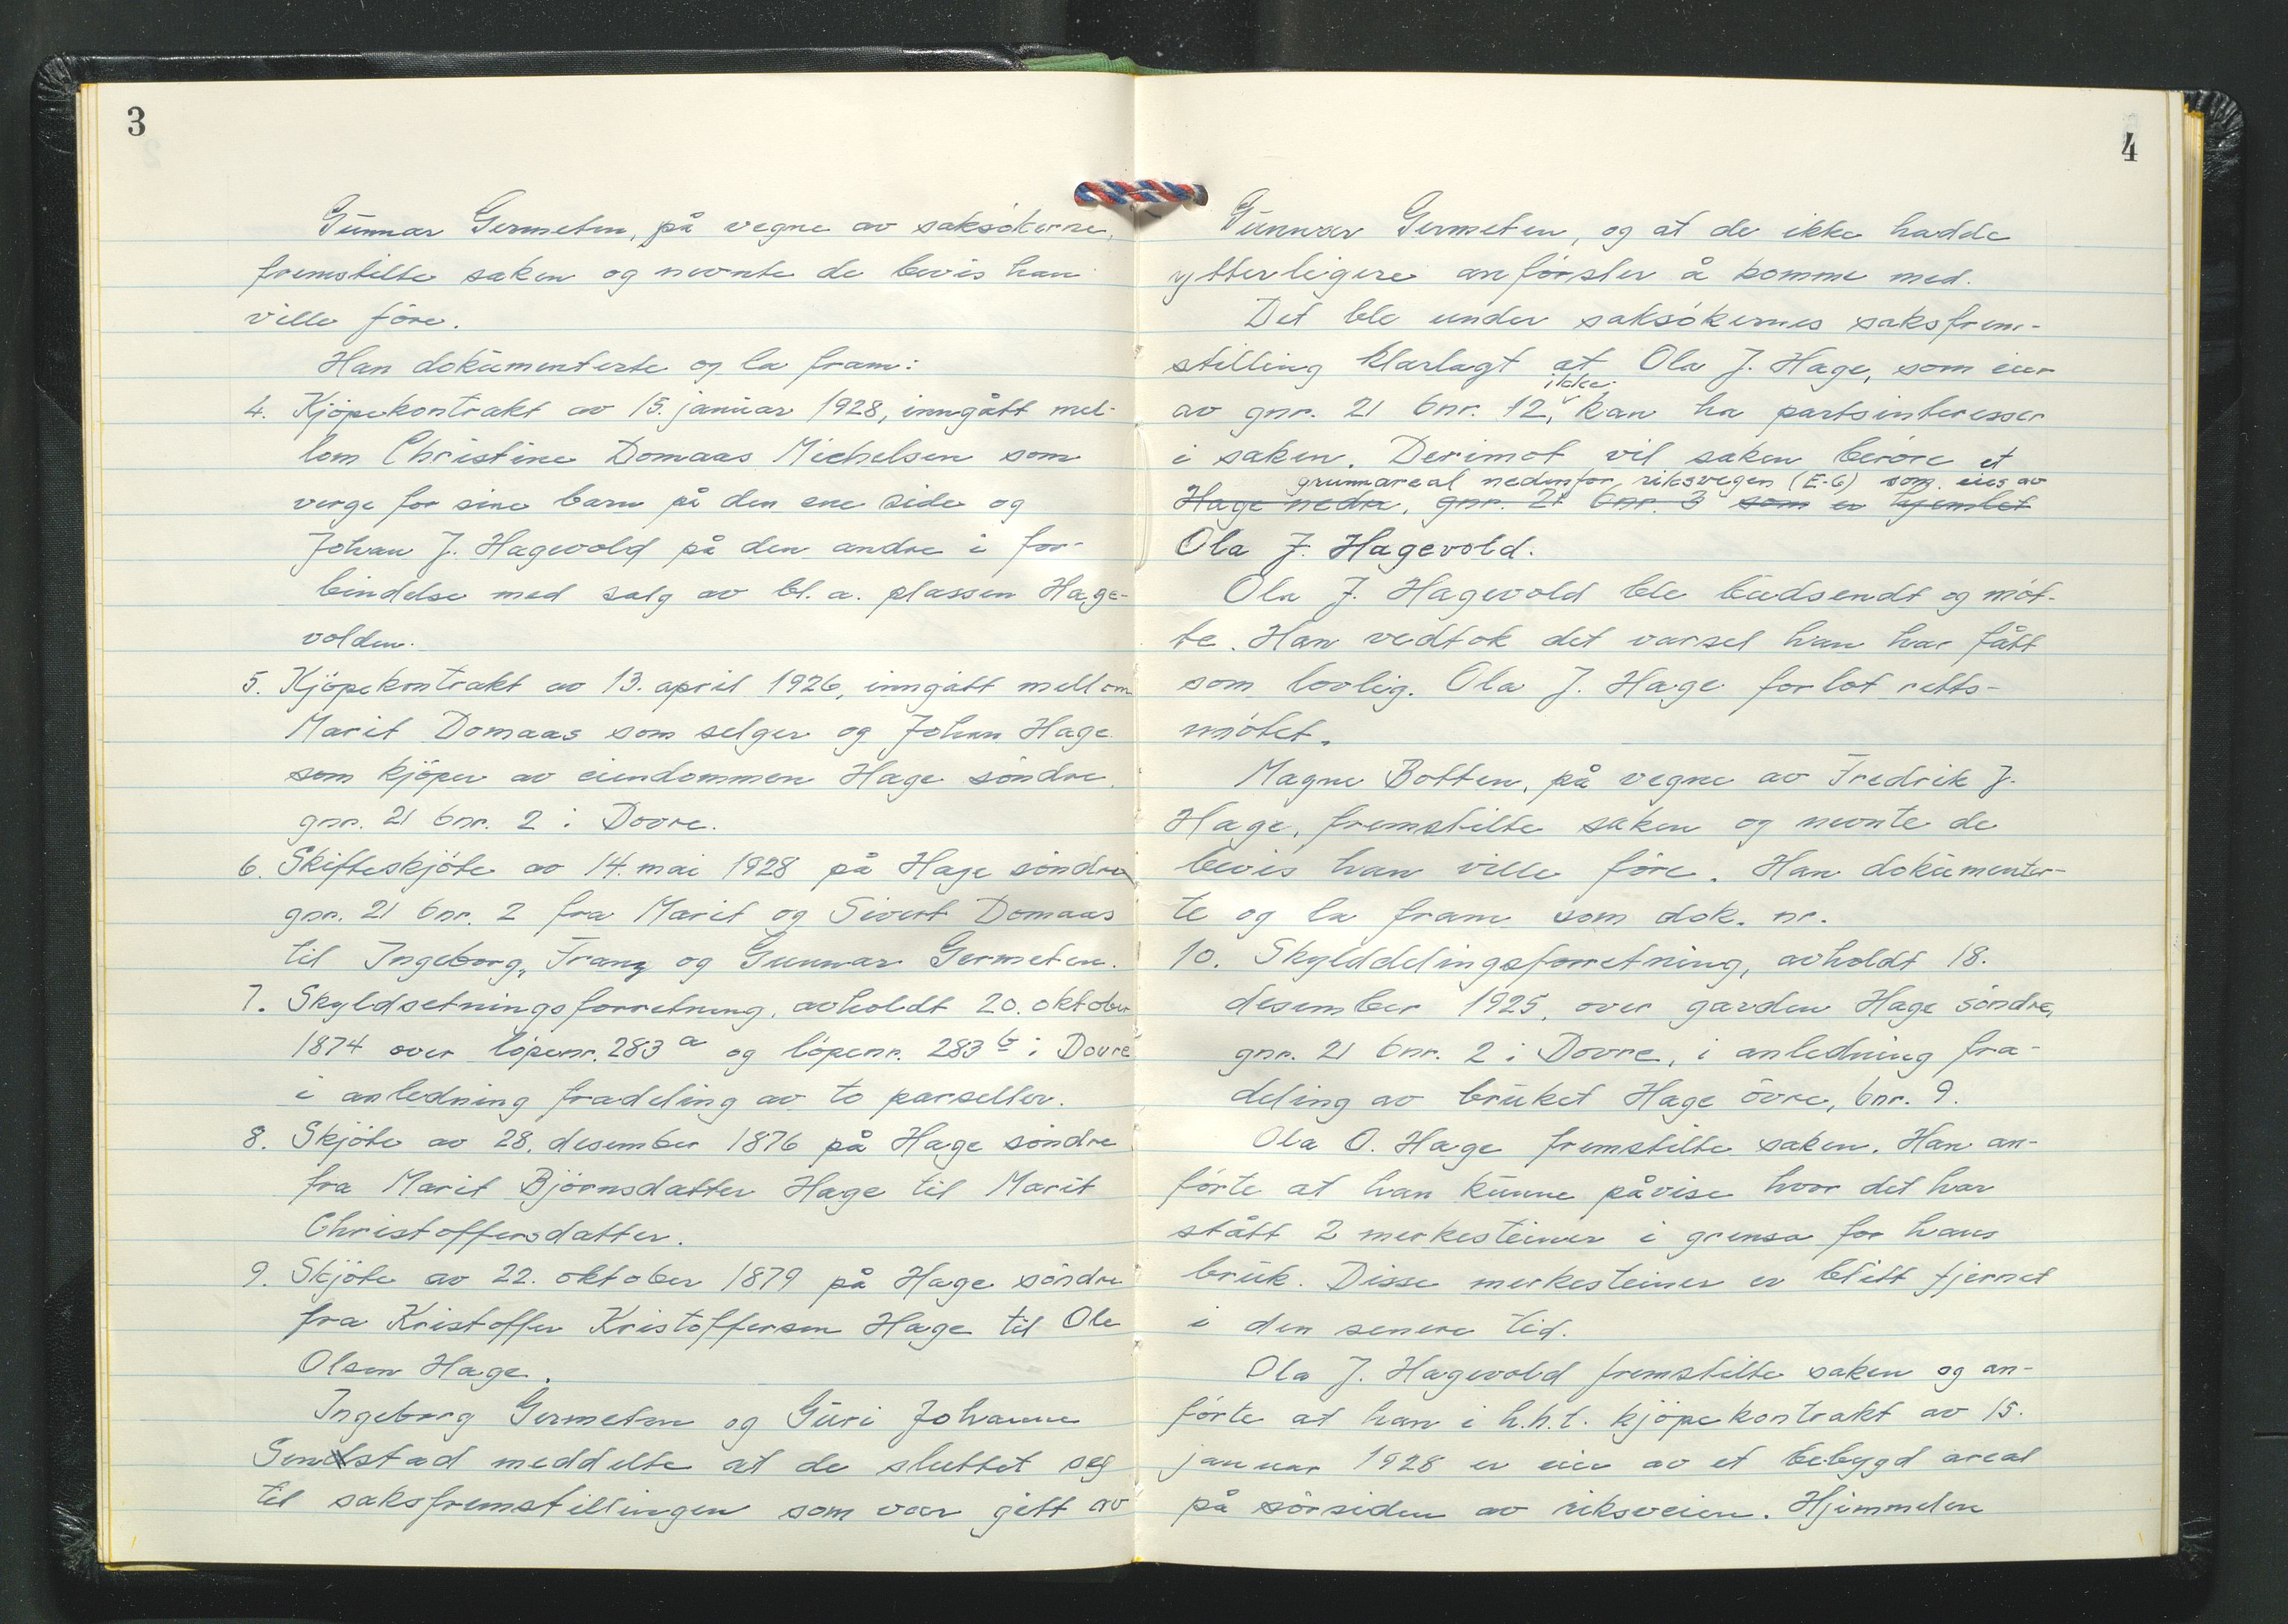 3
Gunnar Germeten, på vegne av saksökerne,
fremstilte saken og nevnte de bevis han
ville före.
Han dokumenterte og la fram:
4. Kjöpekontrakt av 15. januar 1928, inngått mel-
lom Christine Domaas Michelsen som
verge for sine barn på den ene side og
Johan J. Hagevold på den andre i for-
bindelse med salg av bl. a. plassen Hage-
volden.
5. Kjöpekontrakt av 13. april 1926, inngått mellom
Marit Domaas som selger og Johan Hage
som kjöper av eiendommen Hage söndre,
gnr. 21 bnr. 2 i Dovre.
6. Skifteskjöte av 14. mai 1928 på Hage söndre
gnr. 21 bnr. 2 fra Marit og Sivert Domaas
til Ingeborg, Franz og Gunnar Germeten.
7. Skyldsetningsforretning, avholdt 20. oktober
1874 over löpenr. 283 a og löpenr. 283 b i Dovre
i anledning fradeling av to parseller.
8. Skjöte av 28. desember 1876 på Hage söndre
fra Marit Björnsdatter Hage til Marit
Christoffersdatter.
9. Skjöte av 22. oktober 1879 på Hage söndre
fra Kristoffer Kristoffersen Hage til Ole
Olsen Hage.
Ingeborg Germeten og Guri Johanne
meddelte at de sluttet seg
til saksfremstillingen som var gitt av
4
Gunnar Germeten, og at de ikke hadde
ytterligere anförsler å komme med.
Det ble under saksökernes saksfrem-
stilling klarlagt at Ola J. Hage, som eier
ikke
av gnr. 21 bnr. 12, kan ha partsinteresser
i saken. Derimot vil saken beröre et
grunnareal nedenfor riksvegen (E-6) som eies av
Hage nedre, gnr. 21 bnr. 3 som er hjemlet
Ola J. Hagevold.
Ola J. Hagevold ble budsendt og möt-
te. Han vedtok det varsel han har fått
som lovlig. Ola J. Hage forlot retts-
mötet.
Magne Botten, på vegne av Fredrik J.
Hage, fremstilte saken og nevnte de
bevis han ville före. Han dokumenter-
te og la fram som dok. nr.
10. Skylddelingsforretning, avholdt 18.
desember 1925, over garden Hage söndre,
gnr. 21 bnr. 2 i Dovre, i anledning fra-
deling av bruket Hage övre, bnr. 9.
Ola O. Hage fremstilte saken. Han an-
förte at han kunne påvise hvor det har
stått 2 merkesteiner i grensa for hans
bruk. Disse merkesteiner er blitt fjernet
i den senere tid.
Ola J. Hagevold fremstilte saken og an-
förte at han i h.h.t. kjöpekontrakt av 15.
januar 1928 er eier av et bebygd areal
på sörsiden av riksveien. Hjemmelen